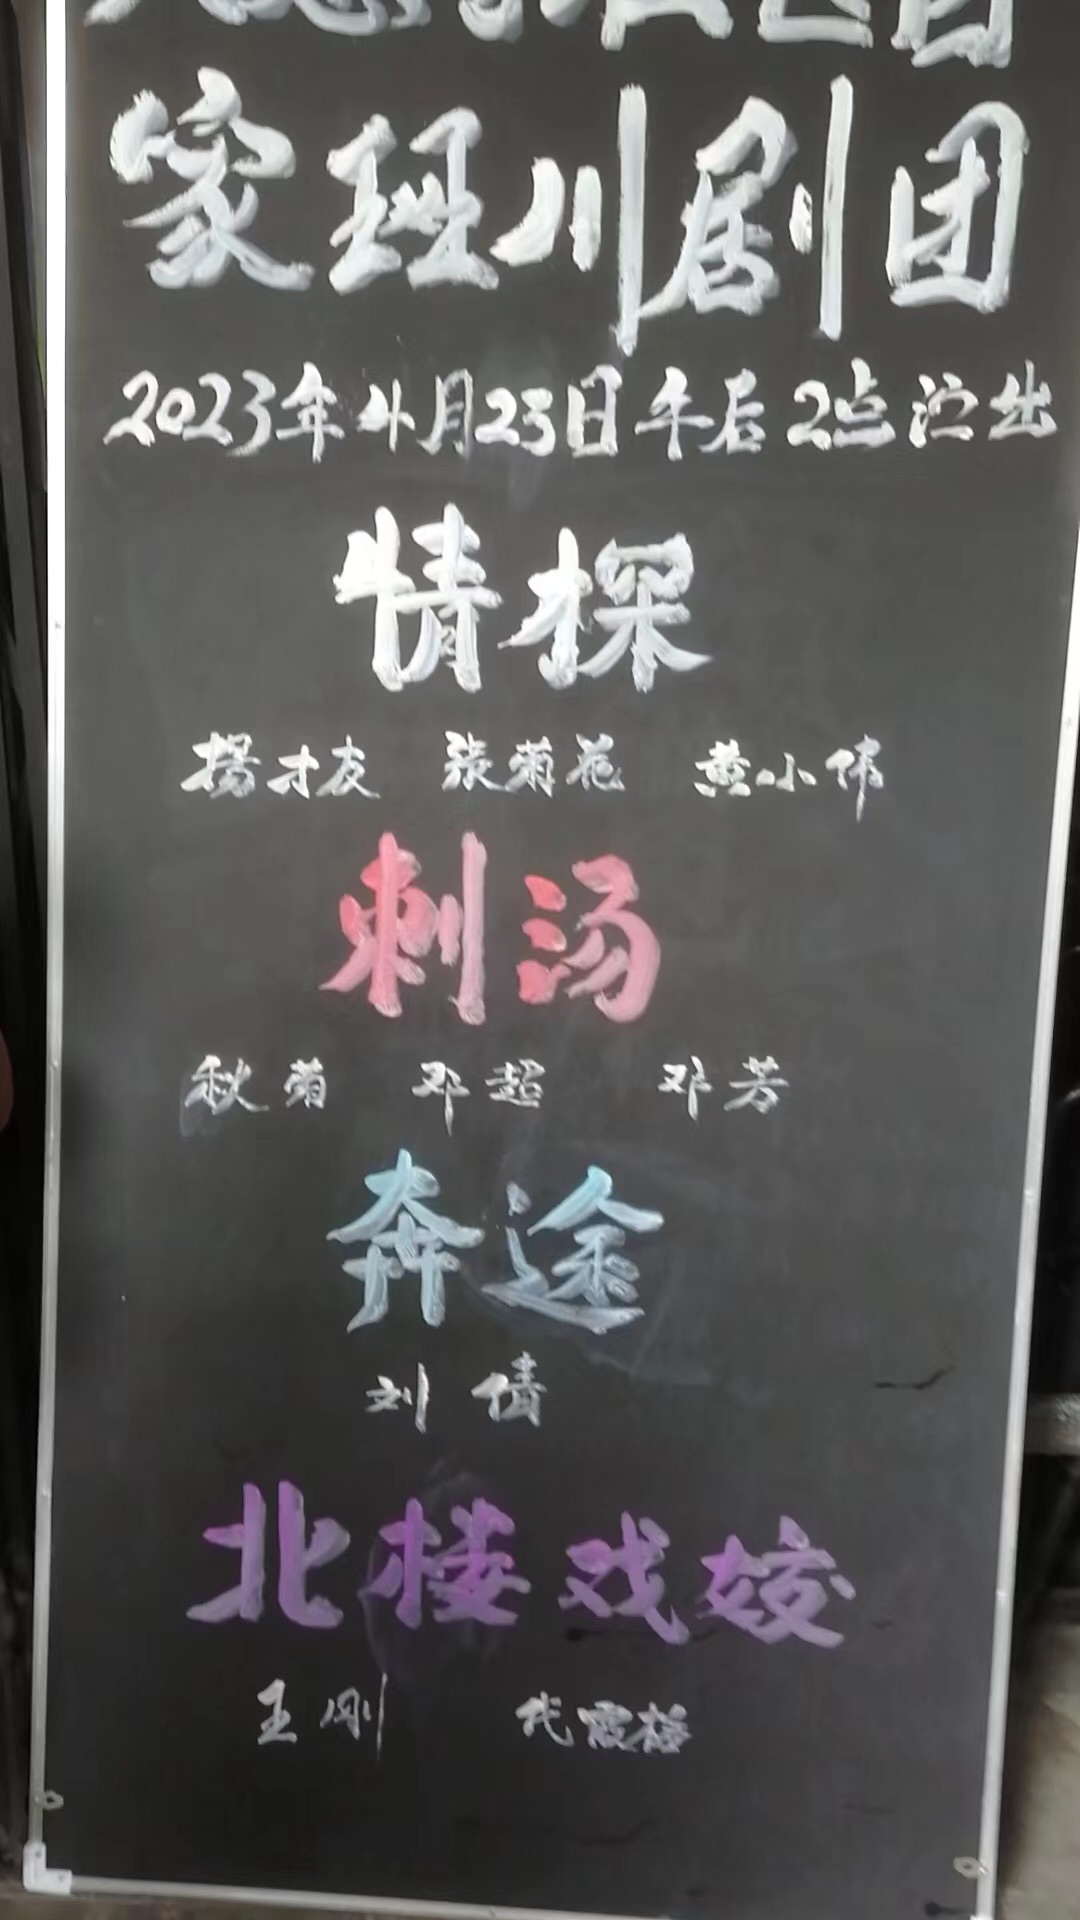 家班川剧团
2023年4月23日午后2点演出
情探
杨才友 张菊花 黄小伟
刺汤
秋菊 邓超 邓芳
奔途
刘倩
北楼戏姣
王刚 代霞